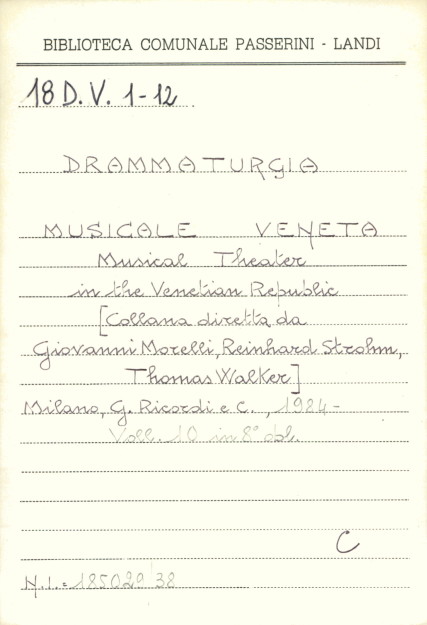 BIBLIOTECA COMUNALE PASSERINI - LANDI
18 D. V. 1-12
DRAMMATURGIA
MUSICALE VENETA
Musical Theater
in the Venetian Republic
[Collana diretta da
Giovanni Morelli, Reinhard Strohm,
Thomas Walker]
Milano, G. Ricordi e C., 1984-
Voll. 10 in 8°
C
N.I.= 185029 38